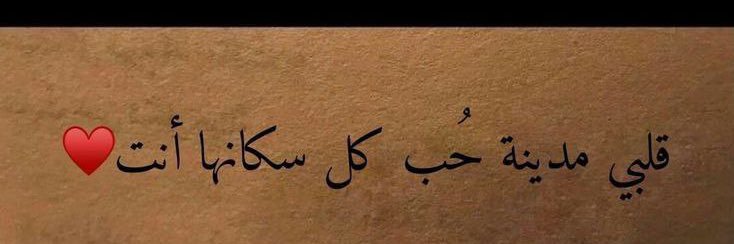 قلبي مدينة حُب كل سكانها أنت♥️